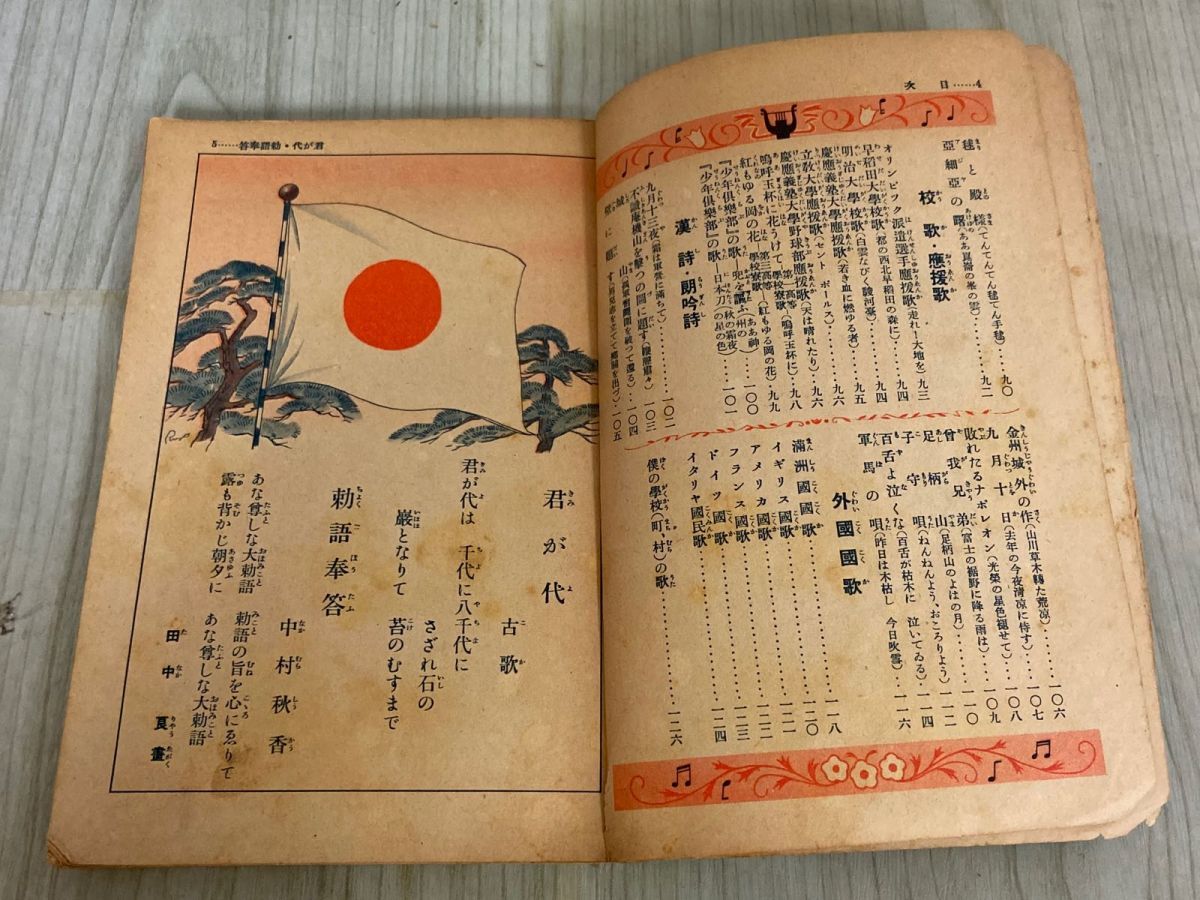 4……目次
毬と殿様(てんてんてん毬てん手毬)……九〇
亞細亞の曙(ああ崑崙の峯の雲)……九二
校歌・應援歌
オリンピック派遣選手應援歌(走れ!大地を)九三
早稻田大學校歌(都の西北早稻田の森に)……九四
明治大學校歌(白雲なびく駿河臺)……九五
慶應義塾大學應援歌(若き血に燃ゆる者)……九六
立敎大學應援歌(セントポールス)……九六
慶應義塾大學野球部應援歌(天は晴れたり)九八
嗚呼玉杯に花うけて―第一高等學校寮歌―(嗚呼玉杯に)
紅もゆる岡の花―第三高等學校寮歌―(紅もゆる岡の花)九九
『少年倶樂部』の歌―兜を
『少年倶樂部』の歌―日本刀
漢詩・朗吟詩
九月十三夜(霜は軍營に滿ちて)……一〇二
不識庵機山を擊つの圖に題す(鞭聲肅々)一〇三
城山(孤軍奮鬪圍を破つて還る)……一〇四
壁に題す(男兒志を立てて鄕關を出づ)一〇五
金州城外の作(山川草木轉た荒凉)……一〇六
九月十日(去年の今夜淸凉に侍す)……一〇七
敗れたるナポレオン(光榮の星色褪せて)……一〇八
曾我兄弟(富士の裾野に降る雨は)……一〇九
足柄山(足柄山のよはの月)……一一〇
子守唄(ねんねんよう、おころりよう)
百舌よ泣くな(百舌が枯木に泣いてゐる)……一一四
軍馬の唄(昨日は木枯し今日吹雪)……一一六
外國國歌
滿洲國國歌……一一八
イギリス國歌……一二〇
アメリカ國歌……一二一
フランス國歌……一二二
ドイツ國歌……一二三
イタリヤ國民歌……一二四
僕の學校(町、村)の歌……一二六
君が代・勅語奉答……5
君が代
古歌
君が代は 千代に八千代に
さざれ石の
巖となりて 苔のむすまで
勅語奉答
中村秋香
あな尊しな大勅語 勅語の旨を心にゑりて
露も背かじ朝夕に あな尊しな大勅語
田中良畫